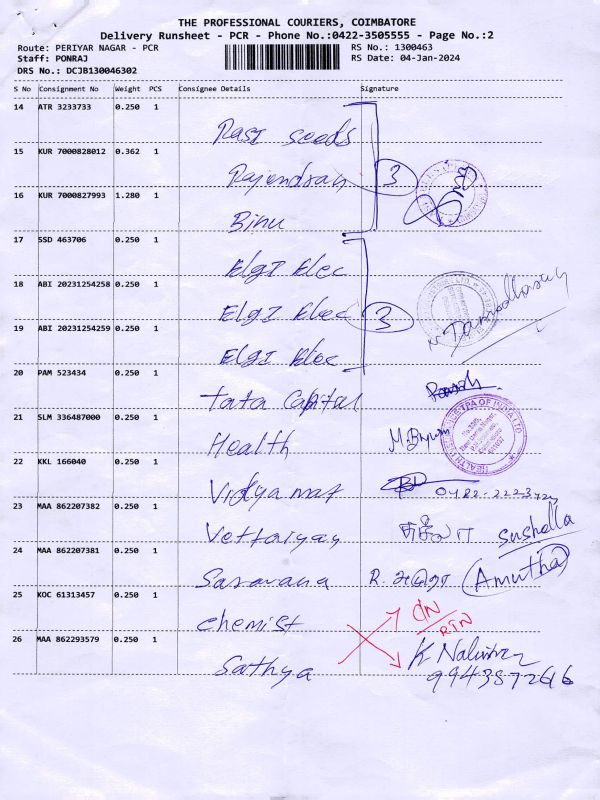 THE PROFESSIONAL COURIERS, COIMBATORE
Delivery Runsheet - PCR - Phone No.:0422-3505555 - Page No.:2
Route: PERIYAR NAGAR - PCR RS No.: 1300463
Staff: PONRAJ RS Date: 04-Jan-2024
DRS No.: DCJB130046302
S No Consignment No Weight PCS Consignee Details Signature
14 ATR 3233733 0.250 1
Rasi seeds
15 KUR 7000828012 0.362 1
Rajendran 3
16 KUR 7000827993 1.280 1
Binu
17 SSD 463706 0.250 1
ElgI Elec
18 ABI 20231254258 0.250 1
ElgI Elec 3
19 ABI 20231254259 0.250 1
ElgI Elec
20 PAM 523434 0.250 1
Tata Capital
21 SLM 336487000 0.250 1
Health
22 KKL 166040 0.250 1
Vidya mat
23 MAA 862207382 0.250 1
Vettaiyan Susheela
24 MAA 862207381 0.250 1
Saravana R. (Amutha)
25 KOC 61313457 0.250 1
Chemist RTN
26 MAA 862293579 0.250 1
Sathya 9943872616